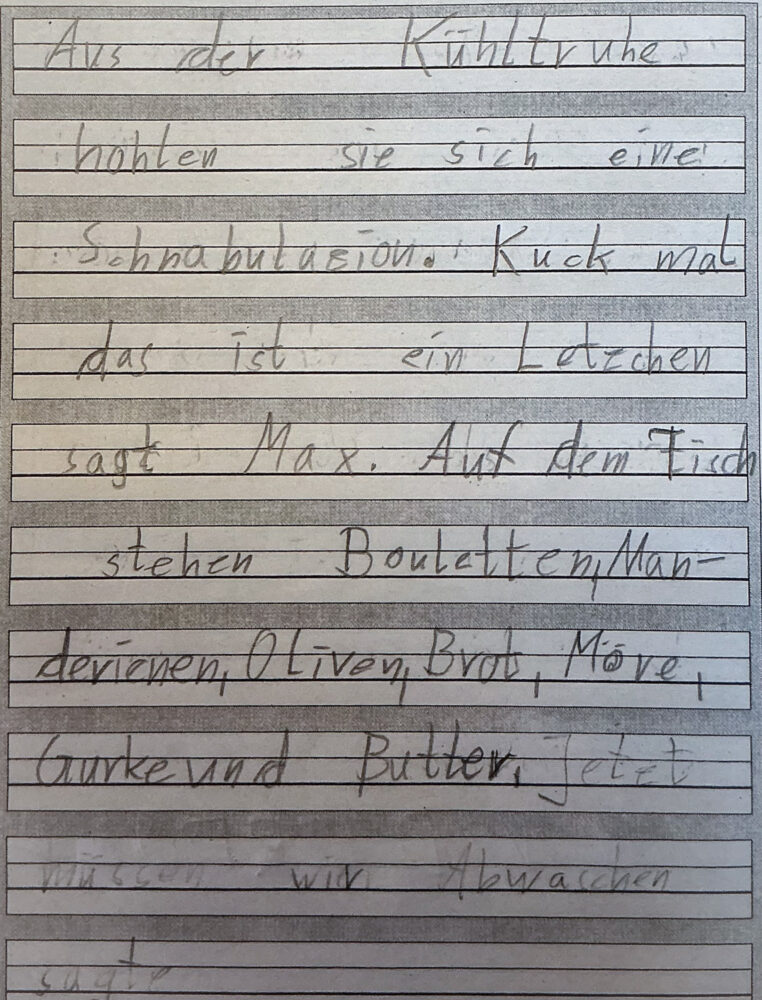 Aus der Kühltruhe
hohlen sie sich eine
Schnabulasion. Kuck mal
das ist ein Letzchen
sagt Max. Auf dem Tisch
stehen Bouletten, Man-
derienen, Oliven, Brot, Möre,
Gurke und Butter. Jetzt
müssen wir Abwaschen
sagte